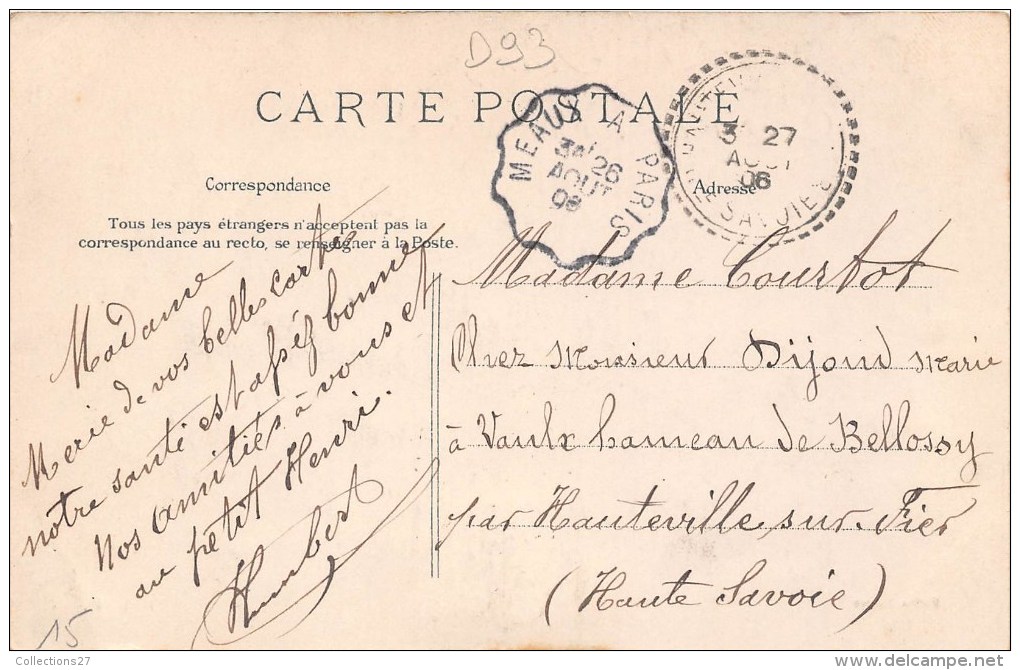 D93
CARTE POSTALE
MEAUX A PARIS
3A 26
AOUT
06
3 27
AOUT
06
HTE SAVOIE
Correspondance
Adresse
Tous les pays étrangers n'acceptent pas la
correspondance au recto, se renseigner à la Poste.
Madame
Merie de vos belles carte
notre santé est asséz bonne
Nos amitiés à vous et
au petit Henri.
Humbert
Madame Courtot
Chez Monsieur Dijoud Marie
à Vaulx hameau de Bellossy
par Hauteville sur Fier
(Haute Savoie)
15
Collections27
www.delcampe.net